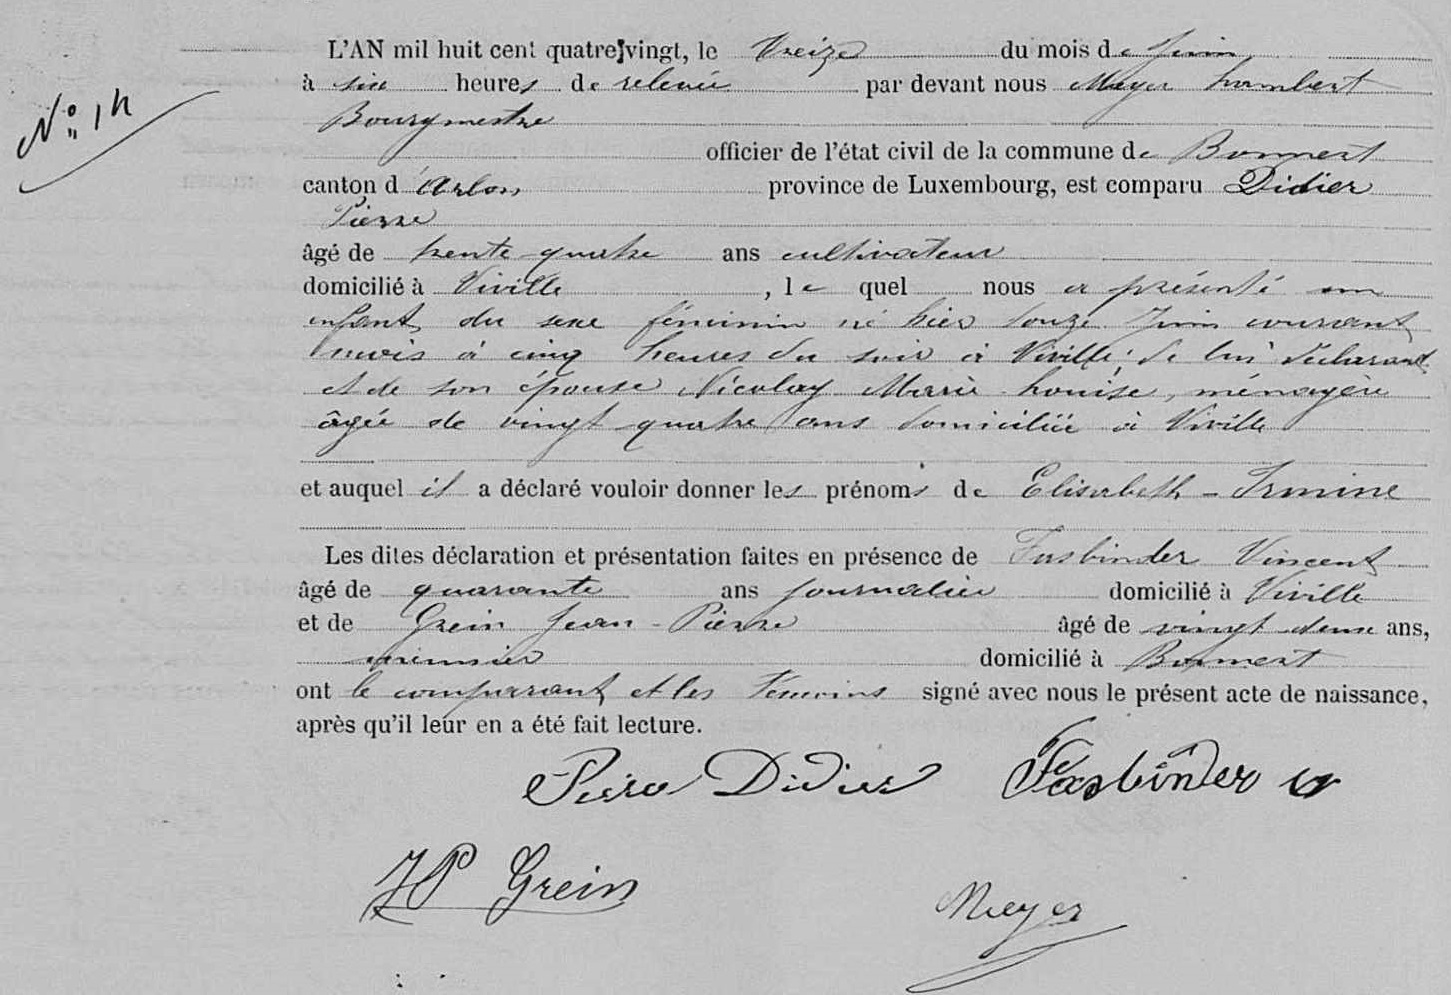 N° 14
L'AN mil huit cent quatre-vingt, le treize du mois de Juin
à six heures de relevée par devant nous Meyer Lambert
Bourgmestre
officier de l'état civil de la commune de Bonnert
canton d'Arlon province de Luxembourg, est comparu Didier
Pierre
âgé de trente quatre ans cultivateur
domicilié à Viville, le quel nous a présenté un
enfant du sexe féminin né hier douze Juin courant
mois à cinq heures du soir à Viville, de lui déclarant
et de son épouse Nicolay Marie Louise, ménagère
âgée de vingt quatre ans domiciliée à Viville
et auquel il a déclaré vouloir donner les prénoms de Elisabeth - Irmine
Les dites déclaration et présentation faites en présence de Fasbinder Vincent
âgé de quarante ans journalier domicilié à Viville
et de Grein Jean - Pierre âgé de vingt deux ans,
domicilié à Bonnert
ont le comparant et les témoins signé avec nous le présent acte de naissance,
après qu'il leur en a été fait lecture.
Pierre Didier Fasbinder V
JP Grein
Meyer